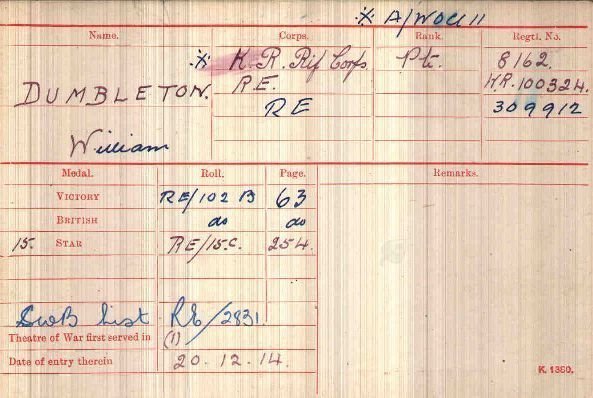 ※ A/WOCl II
Name. Corps. Rank. Regtl. No.
※ K. R. Rif Corps. Pte. 8162.
DUMBLETON. R.E. W.R. 100324.
RE 309912
William
Medal. Roll. Page. Remarks.
VICTORY RE/102 B 63
BRITISH do do
15. STAR RE/15.C. 254.
SWB List RE/2831.
Theatre of War first served in (1)
Date of entry therein 20.12.14.
K. 1380.